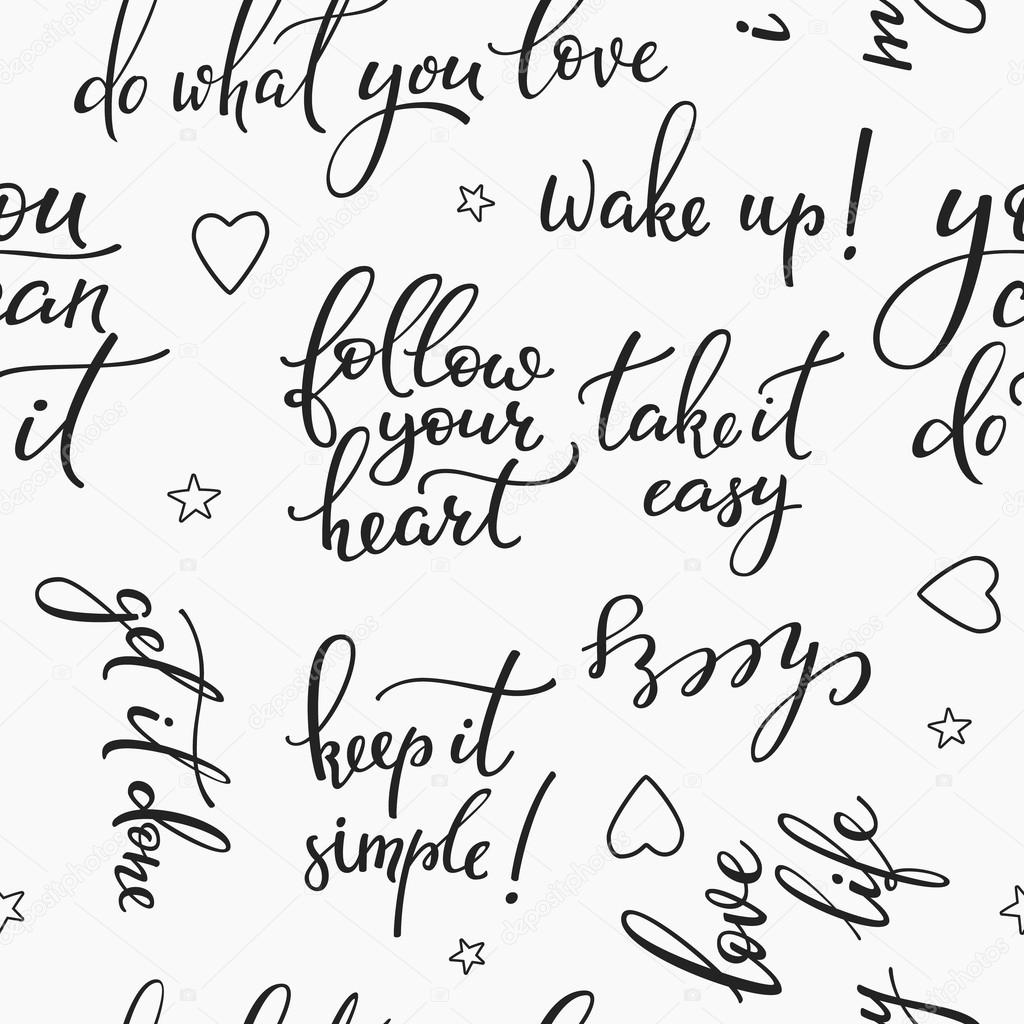 do what you love
i
wake up!
ou
you
follow
your
heart
take it
easy
it
do
get it done
keep it
simple!
love
life
depositphotos